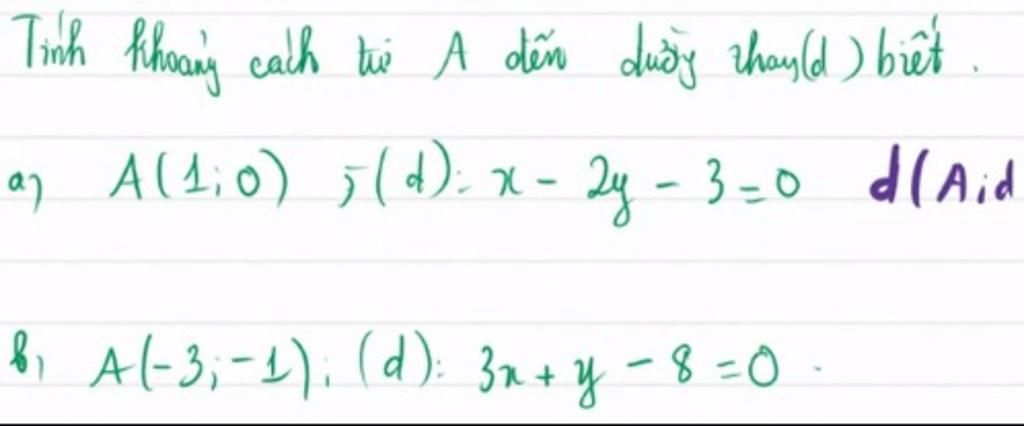 Tính khoảng cách từ A đến đường thẳng (d) biết.
a) A(1;0) ; (d): x - 2y - 3 = 0 d(A;d
b) A(-3;-1); (d): 3x + y - 8 = 0.